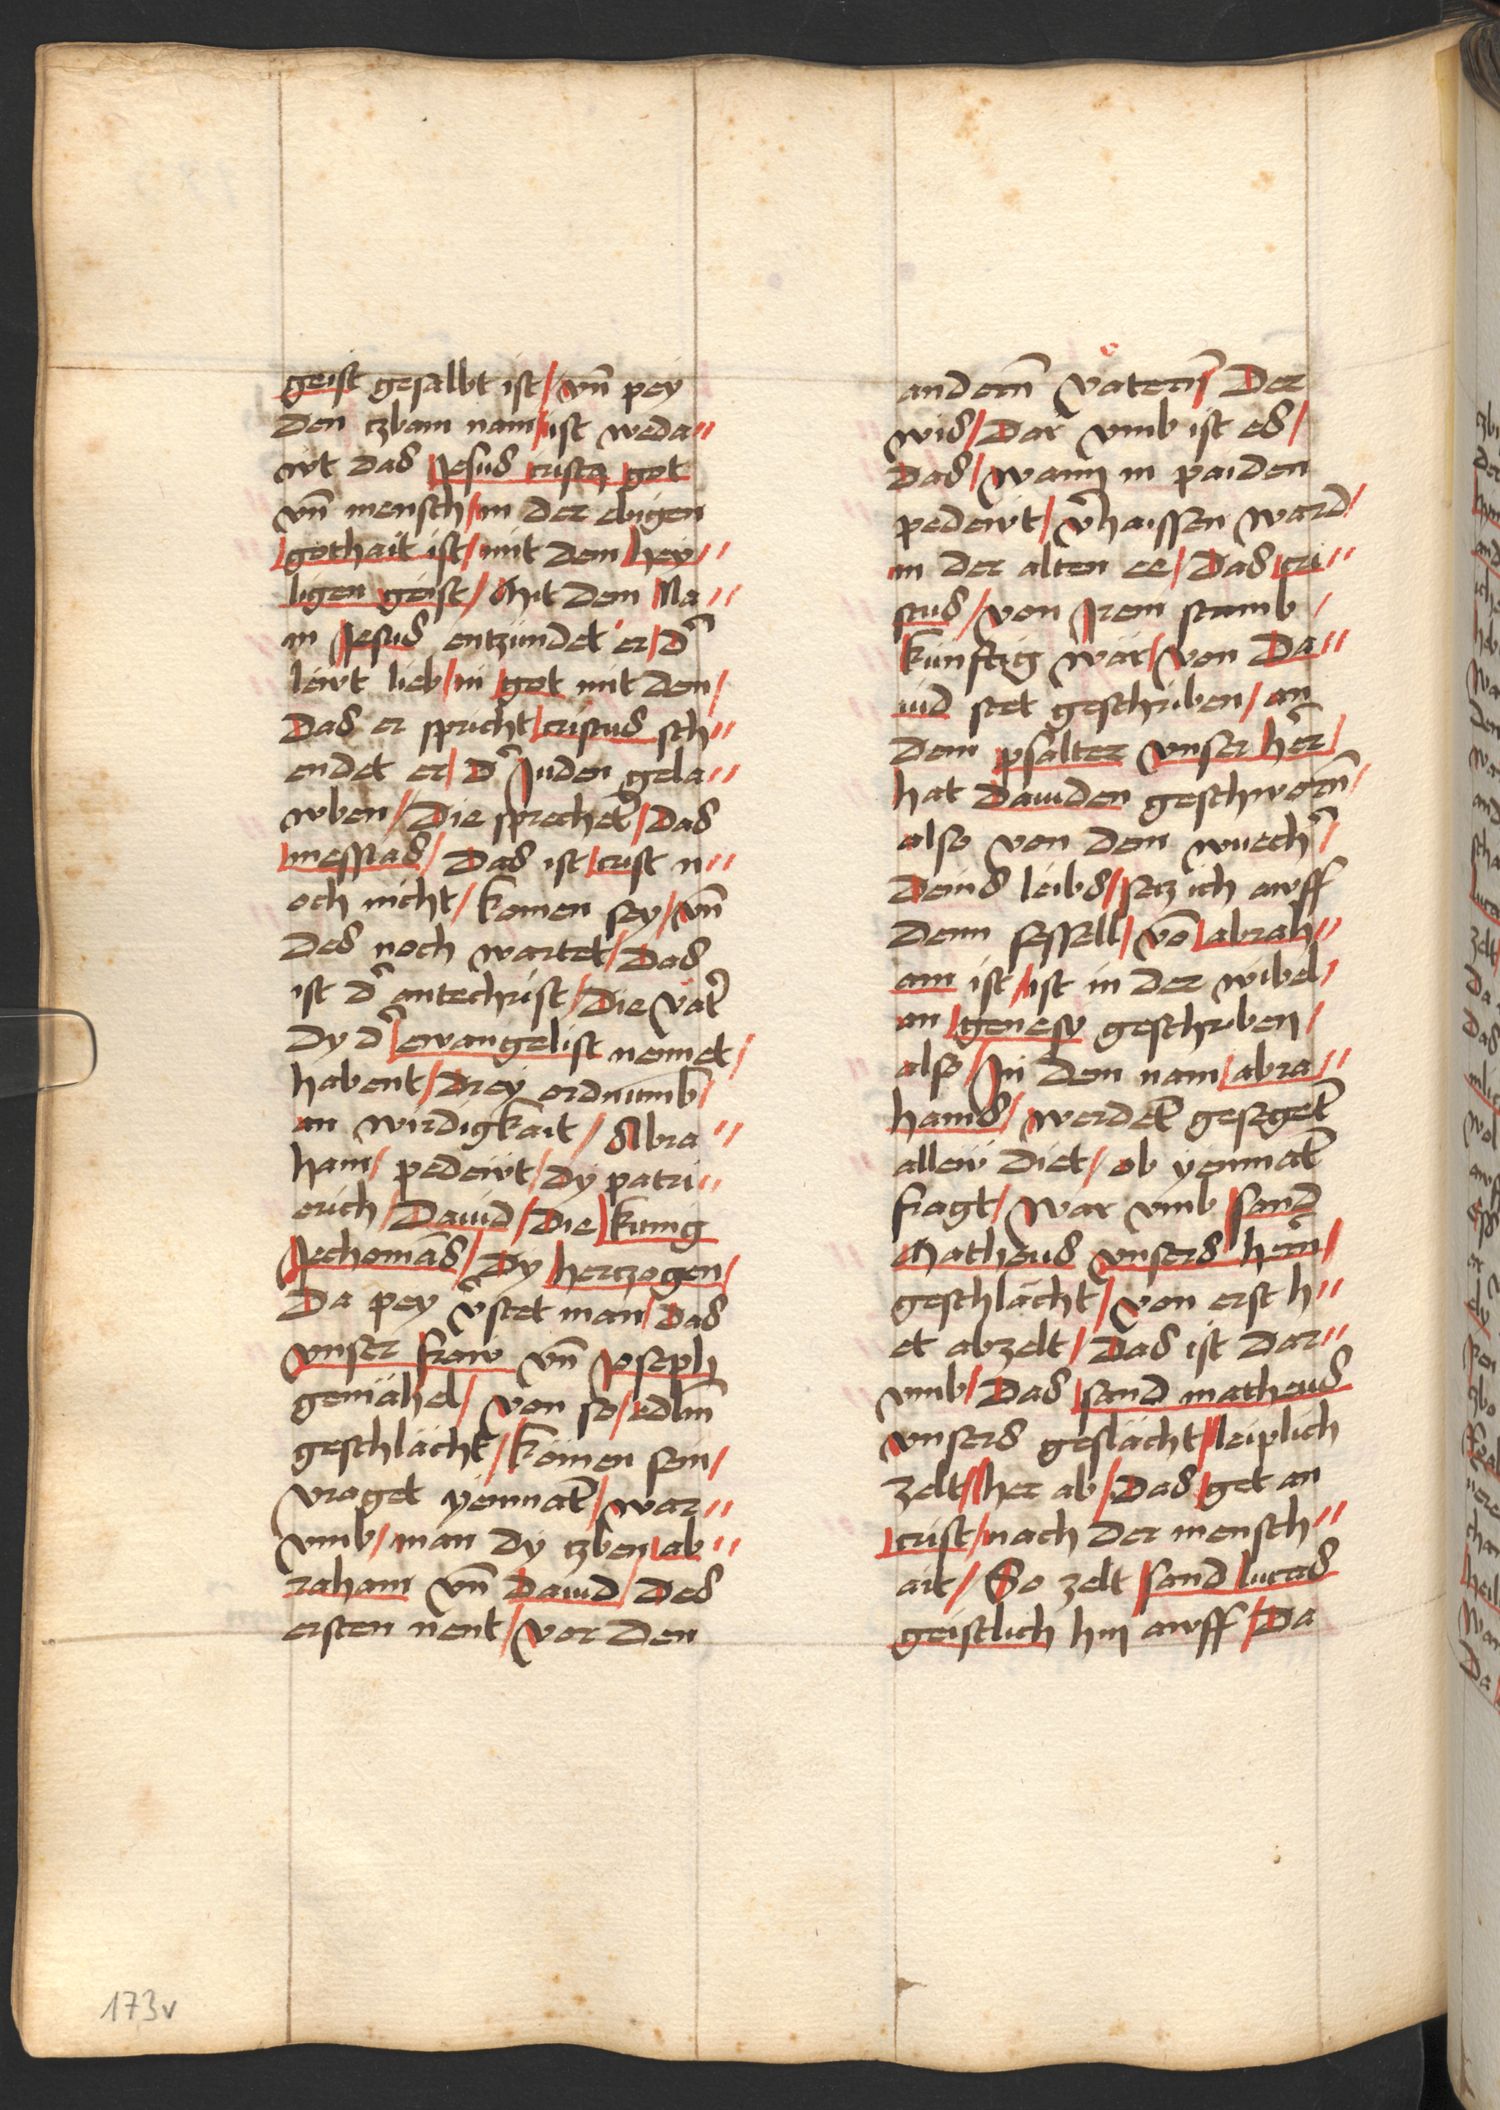 geist gesalbt ist / vn̄ pey
den czbain nam / ist weda//
wt das Jesus cristꝫ got
vn̄ mensch / in der ebigen
gothait ist / mit dem hey//
ligen geist / Mit dem Na//
m Jesus entzündet er / d̓
leẅt lieb / in got mit den /
Das er spricht / cristus sch//
endet er / d̓ Juden gela//
wben / Die sprechet̓ / Das
messias / Das ist / crist n//
och nicht / komen sey / vn̄
des noch wartet / Das
ist d̓ antechrist / Die Vät̓
Dy d̓ ewangelist nennet /
habent / Drey ordnumb /
an wirdigkait / Abra//
ham / pedeẅt / Dy patri//
erich / Dauid / Die kunig
Jechonias / Dy herczogen /
Da pey v̓stet man / Das
vnser fraw vn̄ Joseph
gemähel / von so / edlm̄
geschlächt / kömen sein /
vraget yemmat̄ / war//
vmb / man Dy czben / ab//
raham vn̄ Dauid / Des
ersten nent / vor Den
andern̄ Vätern̄ / Der
wis / Dar vmb ist es /
Das / wann in paiden
pedewt / v̓haissen ward /
in der alten ee / Das cri//
stus / von Jrem stamb /
künftig wär / von Da//
uid stet geschriben / an
dem psalter vnser her̄ /
hat Dauiden geschworn̄ /
also von dem wuech̓ /
Deins leibs / setz ich awff
Denn sessell / vō abrah//
am ist / ist in der wibel /
an genesy geschriben /
also / In dem nam / abra//
hams / werdet̄ gesegēt
alleẅ diet / ob yemmat̄
fragt / war vmb sand
Matheus vnsers hern̄ /
geschlächt / von erst h//
et abzelt / Das ist Dar//
vmb / Das sand matheus
vnsers geslächt / leiplich
zelt / her ab / Das get an
crist / nach der mensch//
ait / So zelt sand lucas
geistlich hin awff / Da
173v